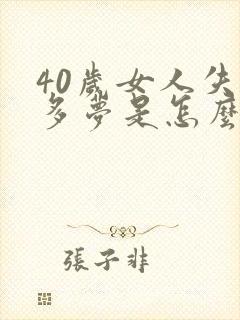 40歲女人失
多夢是怎麼
張子非